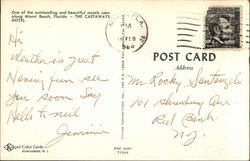 One of the outstanding and beautiful motels seen
along Miami Beach, Florida — THE CASTAWAYS
MOTEL.
FLA.
PM
FEB
1966
POST CARD
Address
Hi
Weather is great
Having fun see
you soon Say
Hello to neil
Jimmie
Mr Rocky Santangelo
101 Shrewsbury Ave.
Red Bank.
N.J.
Koppel Color Cards
HAWTHORNE, N. J.